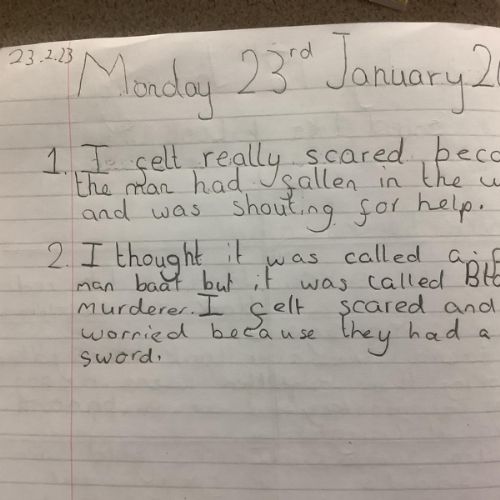 23.2.23
Monday 23rd January
1. I felt really scared
the man had fallen in the
and was shouting for help.
2. I thought it was called a
man baat but it was called
murderer. I felt scared and
worried because they had a
sword.